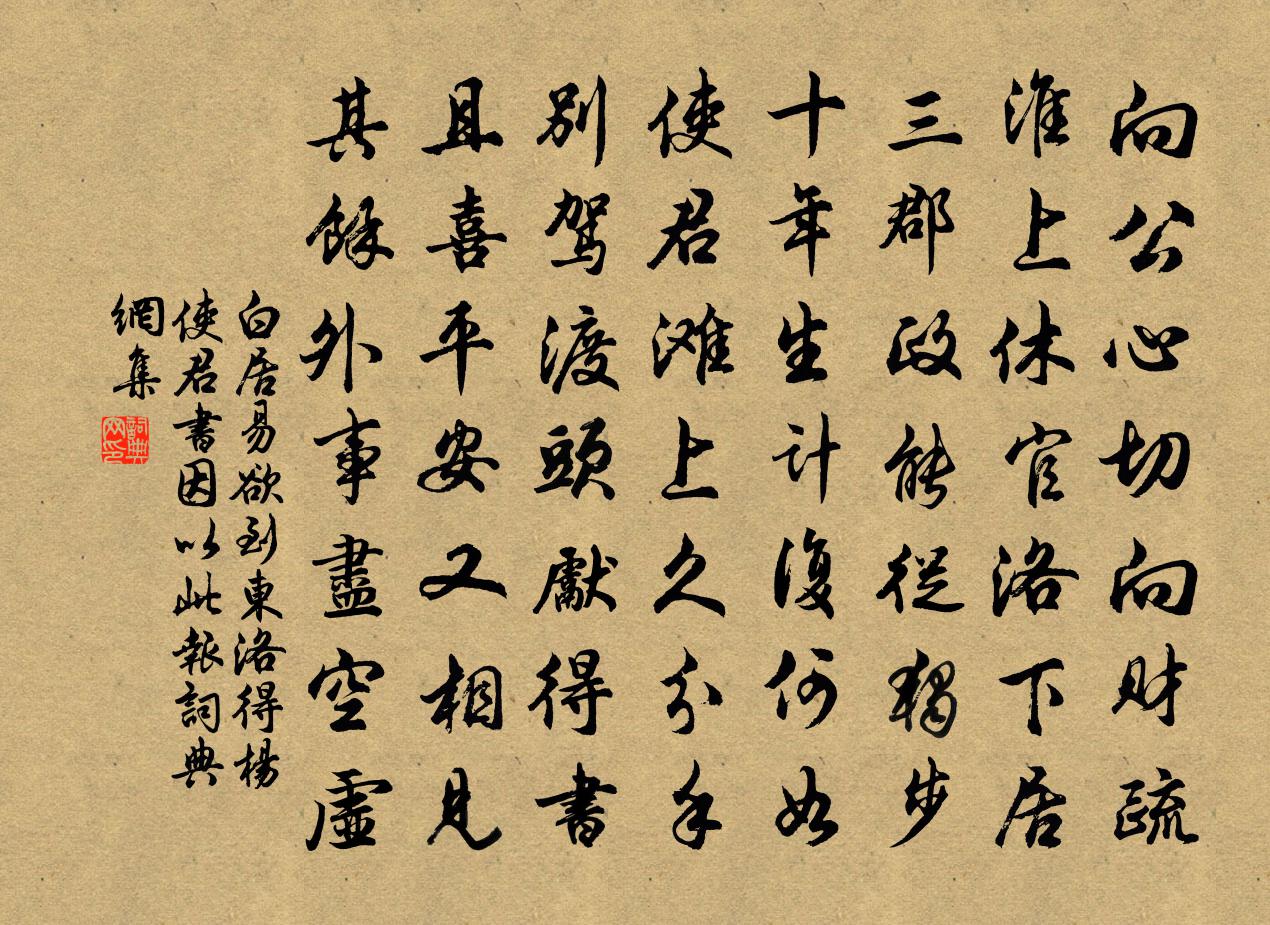 向公心切向財疏
淮上休官洛下居
三郡政能從獨步
十年生計復何如
使君滩上久分手
別駕渡頭獻得書
且喜平安又相見
其餘外事盡空虛
白居易欲到東洛得楊
使君書因以此報詞典
網集
詞典
网印